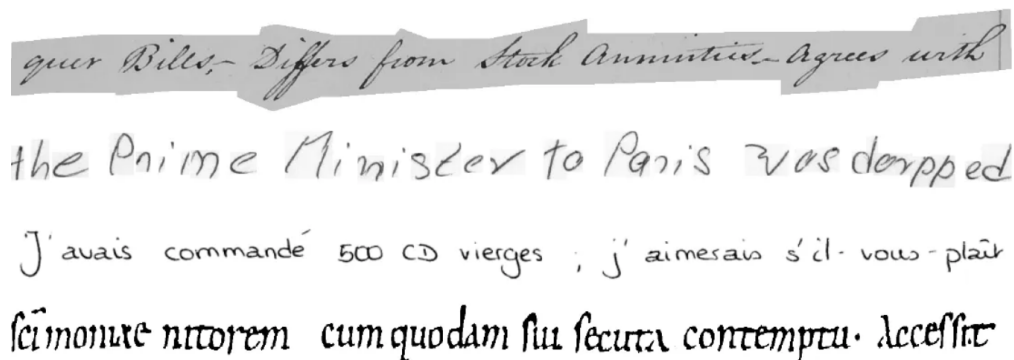 quer Bills,– Differs from Stock Annuities – Agrees with
the Prime Minister to Paris was dorpped
J'avais commandé 500 CD vierges ; j'aimerais s'il-vous-plaît
scĩmoniae nitorem cum quodam sui secuta contemptu. Accessit